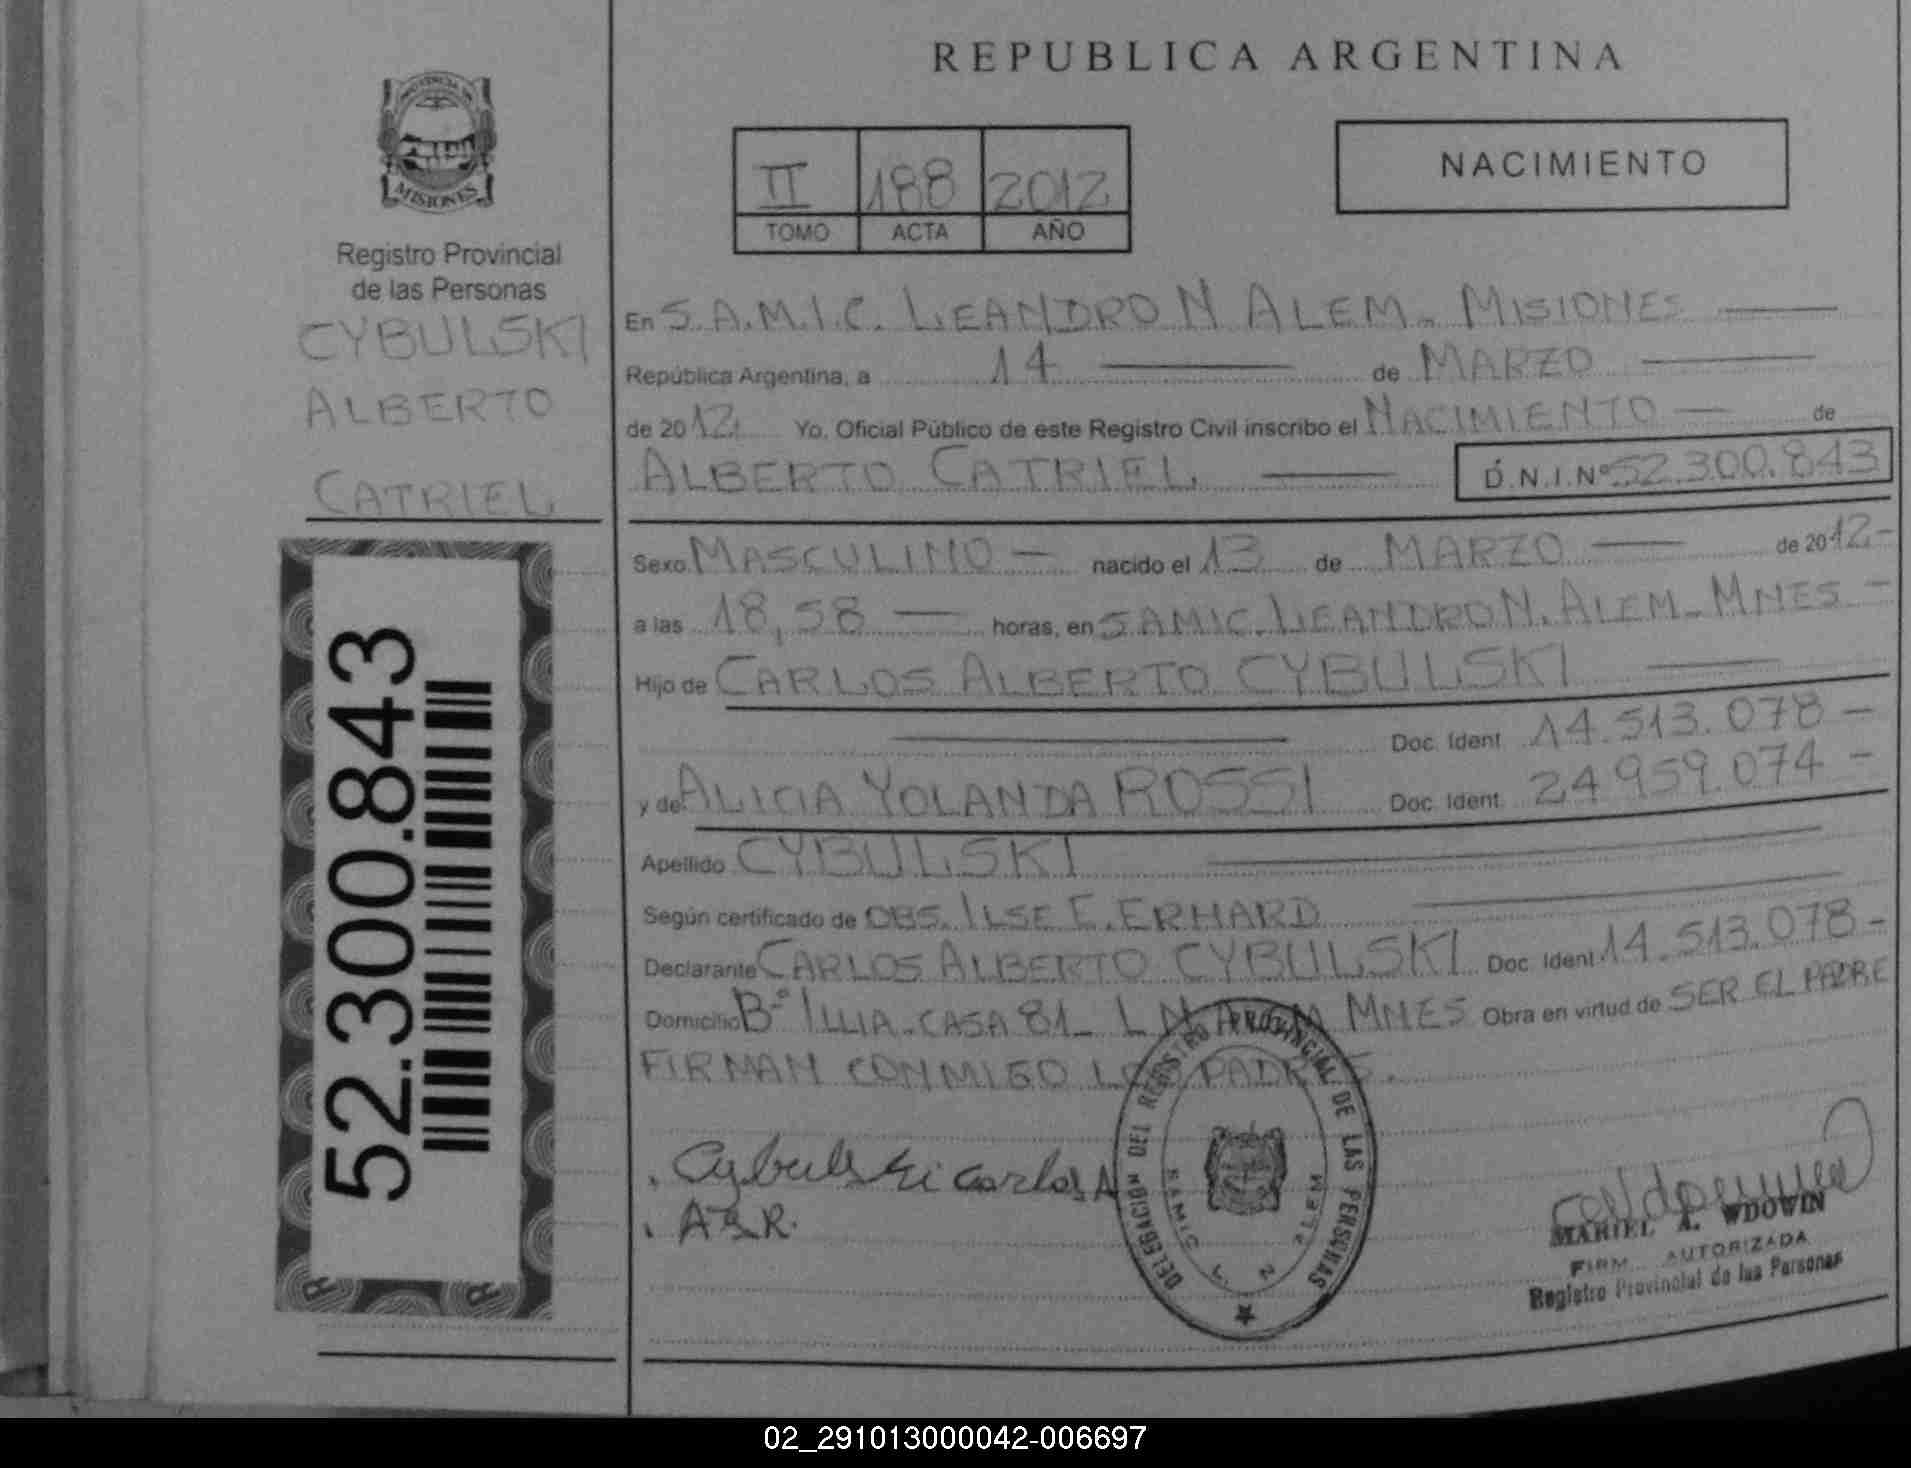 REPUBLICA ARGENTINA
PROVINCIA DE
MISIONES
Registro Provincial
de las Personas
CYBULSKI
ALBERTO
CATRIEL
52.300.843
II 188 2012
TOMO ACTA AÑO
NACIMIENTO
En S.A.M.I.C. LEANDRO N ALEM - MISIONES
República Argentina, a 14 de MARZO
de 2012 Yo, Oficial Público de este Registro Civil inscribo el NACIMIENTO de
ALBERTO CATRIEL D.N.I.Nº 52.300.843
Sexo MASCULINO nacido el 13 de MARZO de 2012-
a las 18,58 horas, en SAMIC. LEANDRO N. ALEM - MNES -
Hijo de CARLOS ALBERTO CYBULSKI
Doc. Ident 14.513.078 -
y de ALICIA YOLANDA ROSSI Doc. Ident. 24 959.074 -
Apellido CYBULSKI
Según certificado de OBS. ILSE E. ERHARD
Declarante CARLOS ALBERTO CYBULSKI Doc. Ident 14.513.078 -
Domicilio Bº ILLIA - CASA 81 - L N ALEM MNES Obra en virtud de SER EL PADRE
FIRMAN CONMIGO LOS PADRES.
Cybulski Carlos A
DELEGACION DEL REGISTRO PROVINCIAL DE LAS PERSONAS
SAMIC L N ALEM
MARIEL A. WDOWIN
FIRM AUTORIZADA
Registro Provincial de las Personas
02_291013000042-006697